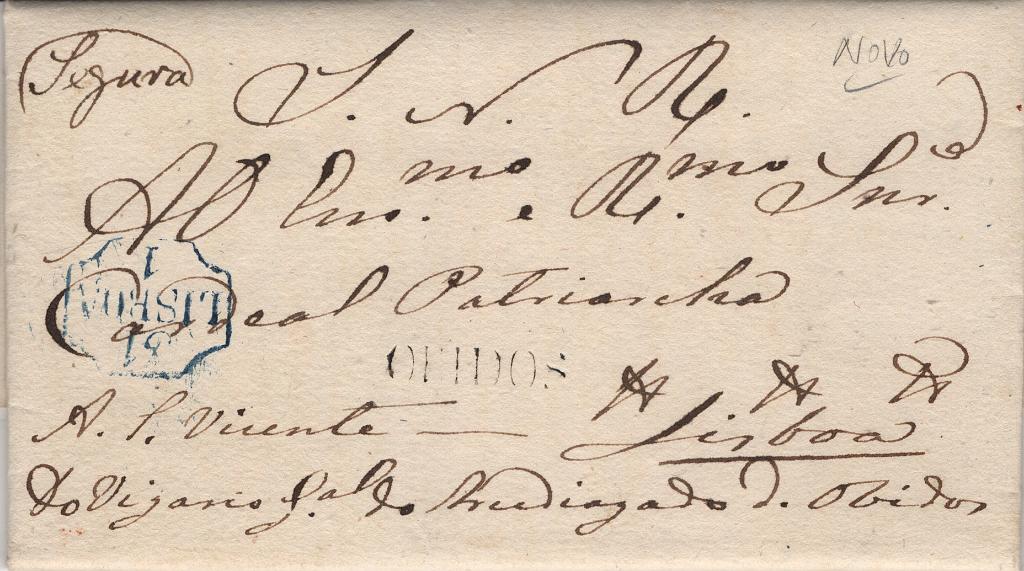 Segura
NOVO
S. N. R.
Ao Em.mo e R.mo Snr.
Cardeal Patriarcha
1
LISBOA
31
OBIDOS
A. S. Vicente — Lisboa
Do Vigario G.al do Arcediagado d. Obidos